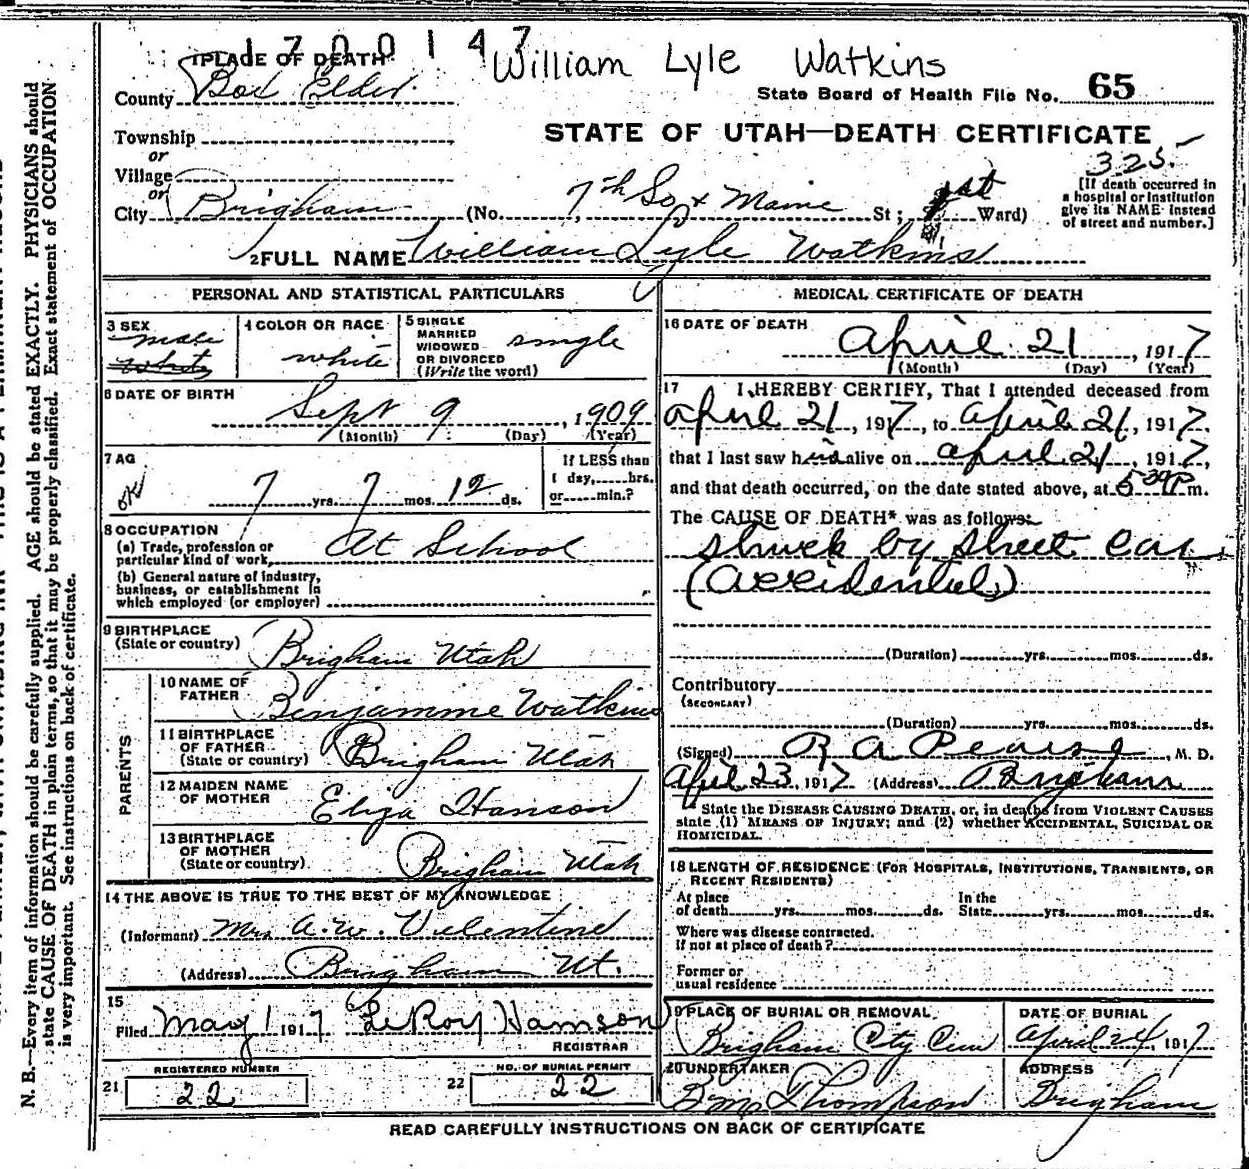 1700147
William Lyle Watkins
1 PLACE OF DEATH
County Box Elder.
State Board of Health File No. 65
Township
STATE OF UTAH—DEATH CERTIFICATE
or
325-
Village
or
City Brigham (No. 7th So & Maine St; 1st Ward)
[If death occurred in
a hospital or institution
give its NAME instead
of street and number.]
2 FULL NAME William Lyle Watkins
PERSONAL AND STATISTICAL PARTICULARS
3 SEX
male
White
4 COLOR OR RACE
white
5 SINGLE
MARRIED
WIDOWED
OR DIVORCED
(Write the word)
single
6 DATE OF BIRTH
Sept 9, 1909
(Month) (Day) (Year)
7 AG
OK
7 yrs. 7 mos. 12 ds.
If LESS than
1 day, hrs.
or min.?
8 OCCUPATION
(a) Trade, profession or
particular kind of work, At School
(b) General nature of industry,
business, or establishment in
which employed (or employer)
9 BIRTHPLACE
(State or country) Brigham Utah
PARENTS
10 NAME OF
FATHER Benjamine Watkins
11 BIRTHPLACE
OF FATHER
(State or country) Brigham Utah
12 MAIDEN NAME
OF MOTHER Eliza Hanson
13 BIRTHPLACE
OF MOTHER
(State or country) Brigham Utah
14 THE ABOVE IS TRUE TO THE BEST OF MY KNOWLEDGE
(Informant) Mrs A.W. Valentine
(Address) Brigham Ut.
15
Filed May 1 1917 LeRoy Hamson
REGISTRAR
REGISTERED NUMBER
21 22
NO. OF BURIAL PERMIT
22 22
MEDICAL CERTIFICATE OF DEATH
16 DATE OF DEATH
April 21, 1917
(Month) (Day) (Year)
17 I HEREBY CERTIFY, That I attended deceased from
April 21, 1917, to April 21, 1917.
that I last saw him alive on April 21, 1917,
and that death occurred, on the date stated above, at 5 30 P m.
The CAUSE OF DEATH* was as follows:
struck by street car
(accidental)
(Duration) yrs. mos. ds.
Contributory
(SECONDARY)
(Duration) yrs. mos. ds.
(Signed) R A Pearse, M. D.
April 23, 1917 (Address) Brigham
State the DISEASE CAUSING DEATH, or, in deaths from VIOLENT CAUSES
state (1) MEANS OF INJURY; and (2) whether ACCIDENTAL, SUICIDAL OR
HOMICIDAL.
18 LENGTH OF RESIDENCE (FOR HOSPITALS, INSTITUTIONS, TRANSIENTS, OR
RECENT RESIDENTS)
At place
of death yrs. mos. ds.
In the
State yrs. mos. ds.
Where was disease contracted.
If not at place of death?
Former or
usual residence
19 PLACE OF BURIAL OR REMOVAL
Brigham Cty Cem
DATE OF BURIAL
April 24, 1917
20 UNDERTAKER
Thompson
ADDRESS
Brigham
READ CAREFULLY INSTRUCTIONS ON BACK OF CERTIFICATE
N. B.—Every item of information should be carefully supplied. AGE should be stated EXACTLY. PHYSICIANS should
state CAUSE OF DEATH in plain terms, so that it may be properly classified. Exact statement of OCCUPATION
is very important. See instructions on back of certificate.